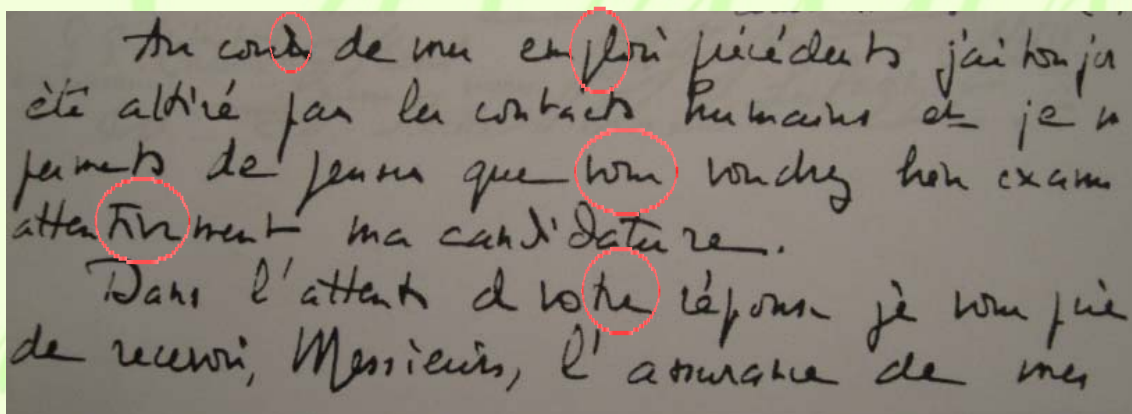 Au cours de mes emplois précédents j'ai toujou
été attiré par les contacts humains et je m
permets de penser que vous voudrez bien examin
attentivement ma candidature.
Dans l'attente de votre réponse je vous prie
de recevoir, Messieurs, l'assurance de mes